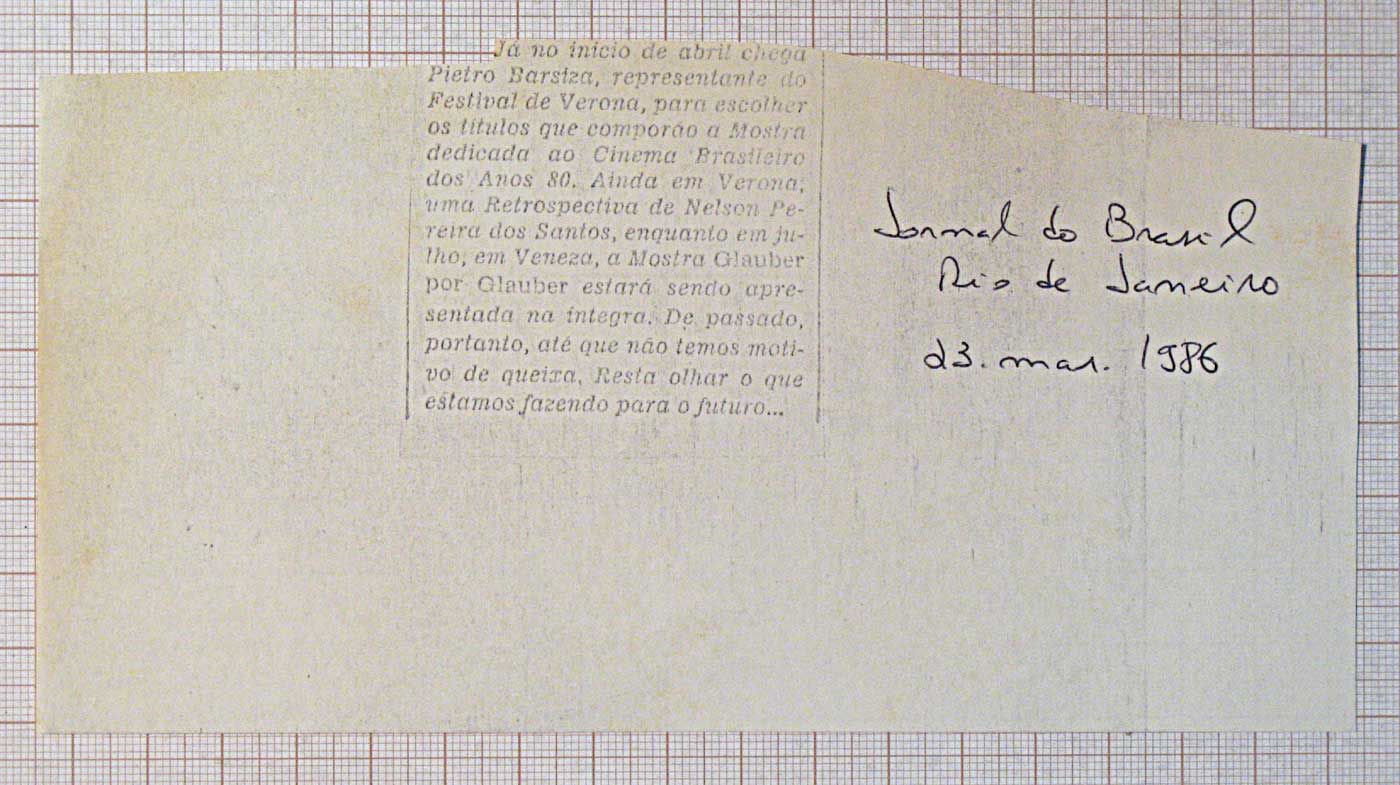 Já no início de abril chega
Pietro Barsiza, representante do
Festival de Verona, para escolher
os títulos que comporão a Mostra
dedicada ao Cinema Brasileiro
dos Anos 80. Ainda em Verona,
uma Retrospectiva de Nelson Pe-
reira dos Santos, enquanto em ju-
lho, em Veneza, a Mostra Glauber
por Glauber estará sendo apre-
sentada na íntegra. De passado,
portanto, até que não temos moti-
vo de queixa. Resta olhar o que
estamos fazendo para o futuro...
Jornal do Brasil
Rio de Janeiro
23. mar. 1986